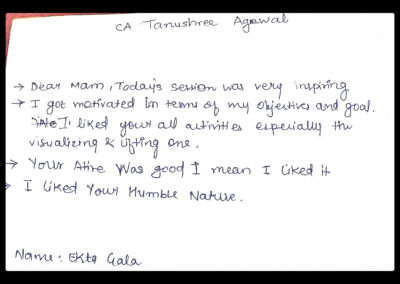 CA Tanushree Agawal
→ Dear Mam, Today's session was very inspiring
→ I got motivated in terms of my objectives and goal.
I liked your all activities especially the
visualizing & lifting one.
→ Your Atire Was good I mean I liked it
→ I liked Your Humble Nature.
Name: Ekta Gala